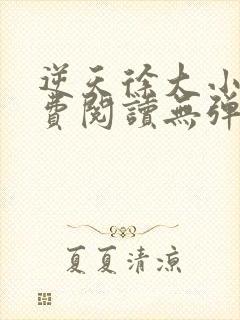 逆天徐大小
費閱讀無彈
夏夏清涼